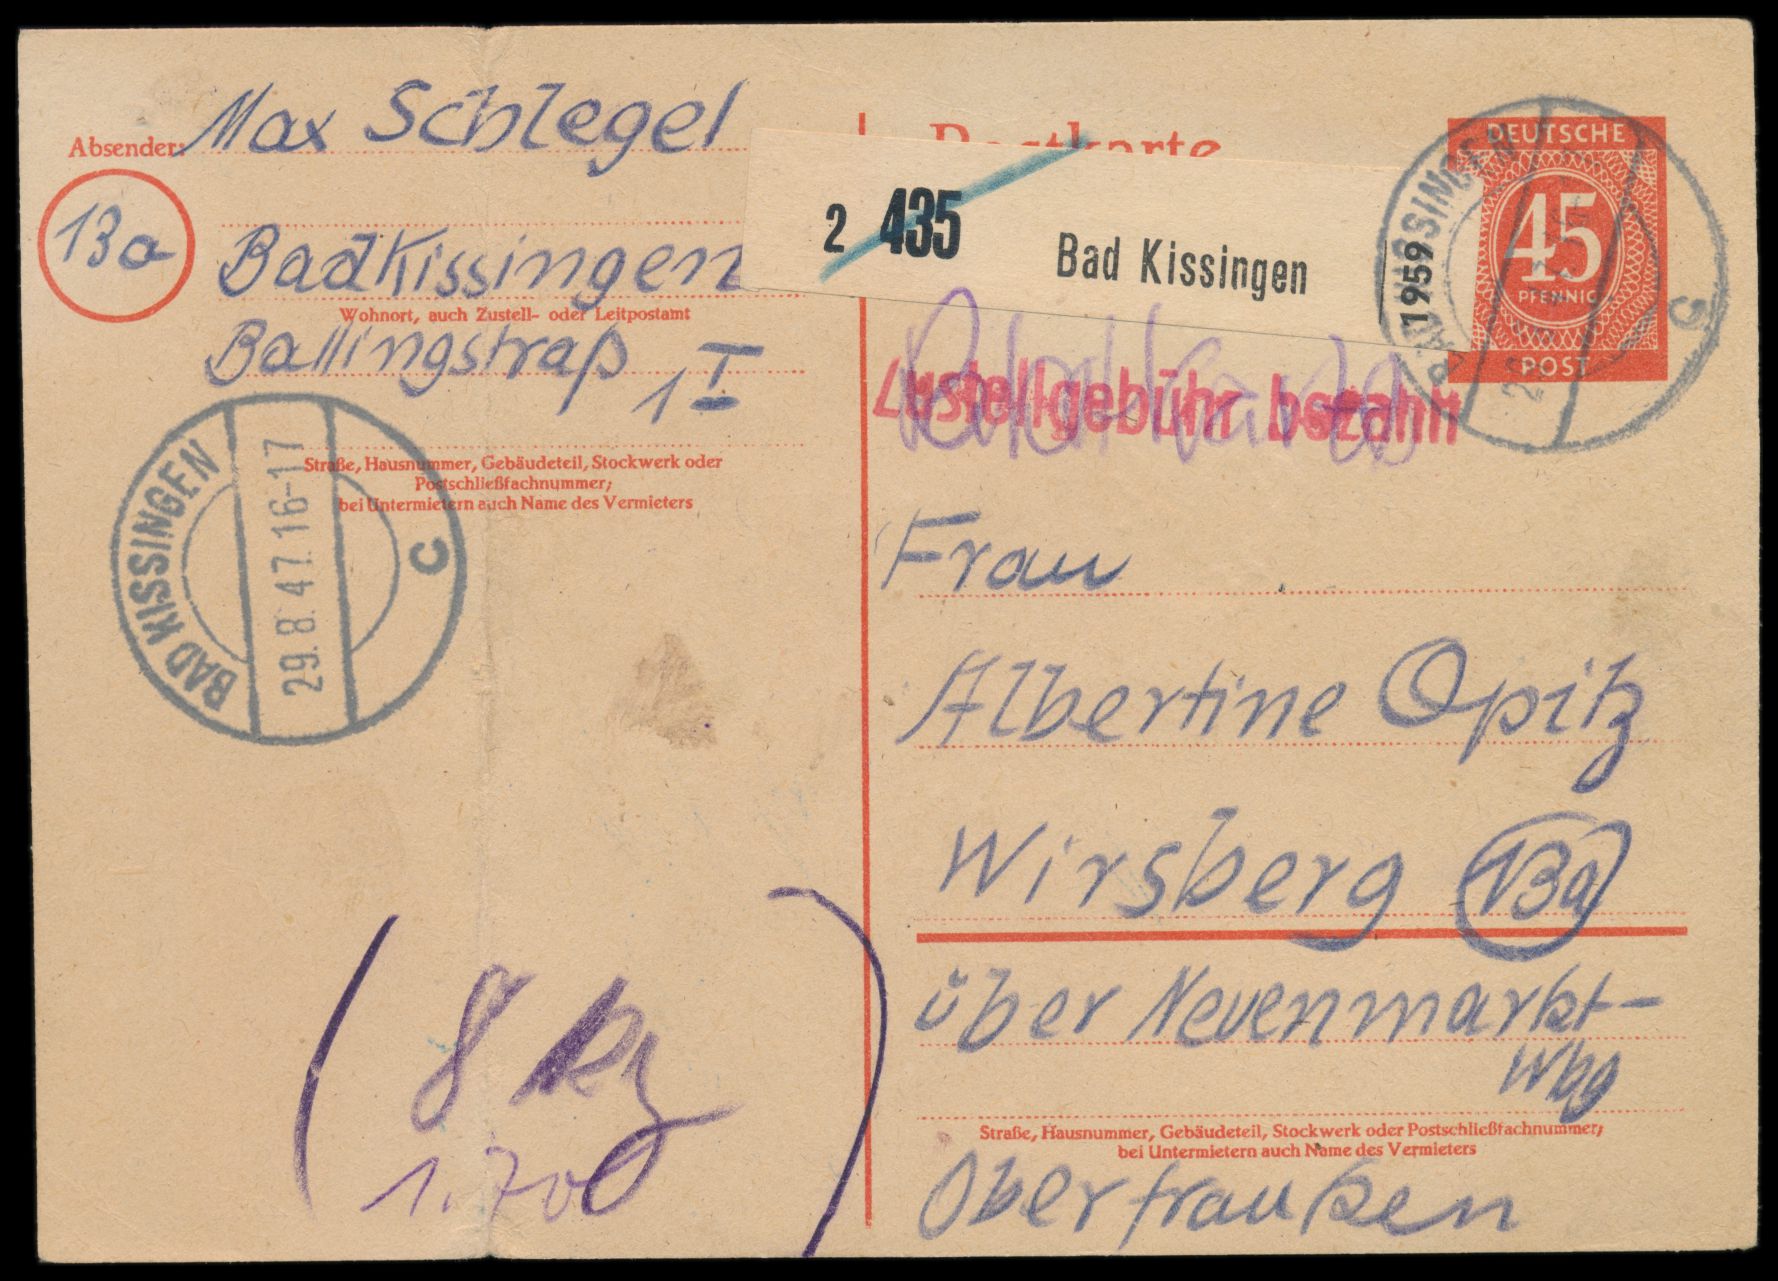 Absender: Max Schlegel
13a
Bad Kissingen
Wohnort, auch Zustell- oder Leitpostamt
Ballingstraß 1 I
Straße, Hausnummer, Gebäudeteil, Stockwerk oder
Postschließfachnummer;
bei Untermietern auch Name des Vermieters
BAD KISSINGEN
29.8.47.16-17
c
(8 kg)
1.70
Postkarte
2 435 Bad Kissingen
1959
DEUTSCHE
45
PFENNIG
POST
BAD KISSINGEN
c
Zustellgebühr bezahlt
Frau
Albertine Opitz
Wirsberg 13a
über Neuenmarkt-
Wbg
Straße, Hausnummer, Gebäudeteil, Stockwerk oder Postschließfachnummer;
bei Untermietern auch Name des Vermieters
Oberfranken